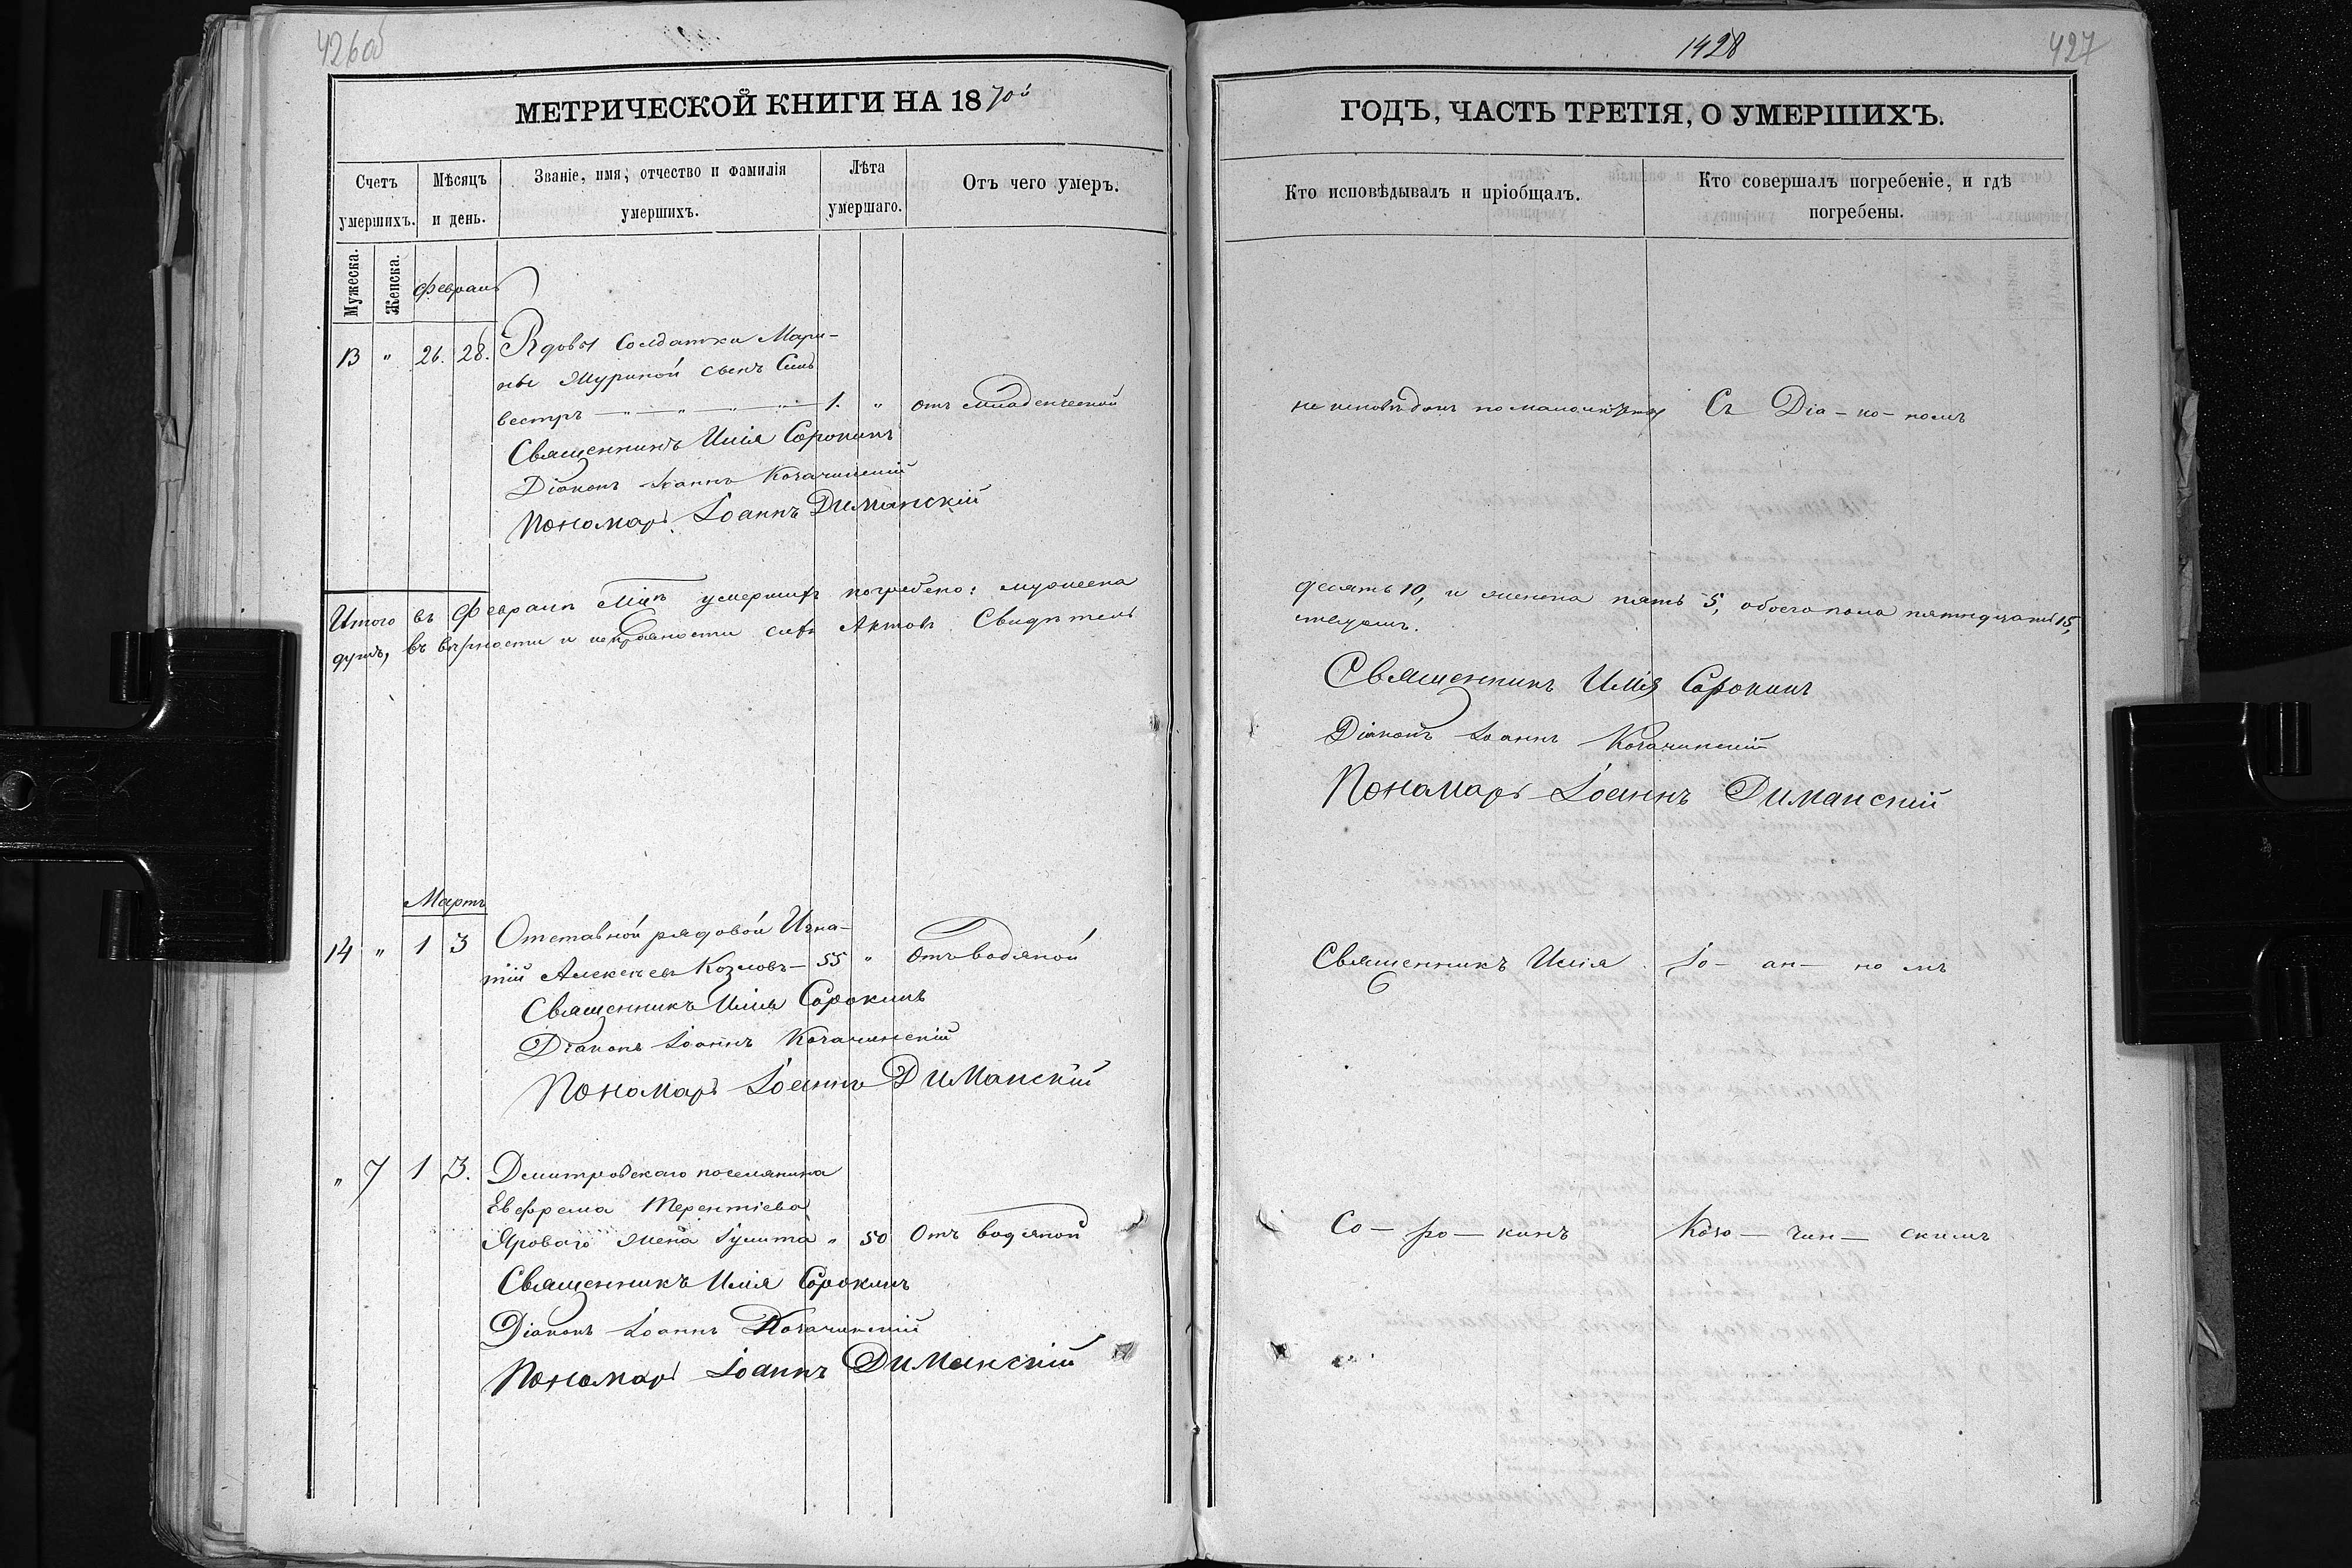 426об
МЕТРИЧЕСКОЙ КНИГИ НА 1870й
Счетъ умершихъ.
Мѣсяцъ и день.
Званіе, имя, отчество и фамилія умершихъ.
Лѣта умершаго.
Отъ чего умеръ.
Мужеска.
Женска.
Февраль
13 " 26. 28. Вдовы Солдатки Мари-
ны Муриной сынъ Силь
вестръ — " — " — " — " — 1. " отъ младенческой
Священникъ Илія Сорокинъ
Діаконъ Іоаннъ Когачинскій
Пономарь Іоаннъ Диманскій
Итого въ Февралѣ м-цѣ умершихъ погребено: мужеска
душъ, въ вѣрности и исправности сихъ Актовъ Свидѣтель
Мартъ
14 " 1 3 Отставной рядовой Игна-
тій Алексѣевъ Козловъ — 55 " Отъ водяной
Священникъ Илія Сорокинъ
Діаконъ Іоаннъ Когачинскій
Пономарь Іоаннъ Диманскій
" 7 1 3. Дмитровскаго поселянина
Евфрема Терентіева
Яроваго жена Іулита " 50 Отъ водяной
Священникъ Илія Сорокинъ
Діаконъ Іоаннъ Когачинскій
Пономарь Іоаннъ Диманскій
1428
427
ГОДЪ, ЧАСТЬ ТРЕТІЯ, О УМЕРШИХЪ.
Кто исповѣдывалъ и пріобщалъ.
Кто совершалъ погребеніе, и гдѣ погребены.
не исповѣданъ по малолѣтству Съ Діа - ко - номъ
десять 10, и женска пять 5, обоего пола пятнадцать 15,
ствуемъ.
Священникъ Илія Сорокинъ
Діаконъ Іоаннъ Когачинскій
Пономарь Іоаннъ Диманскій
Священникъ Илія Іо - ан - но мъ
Со - ро - кинъ Кога - чин - скимъ